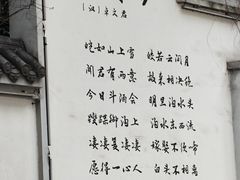 （汉）卓文君
皑如山上雪 皎若云间月
闻君有两意 故来相决绝
今日斗酒会 明旦沟水头
躞蹀御沟上 沟水东西流
凄凄复凄凄 嫁娶不须啼
愿得一心人 白头不相离